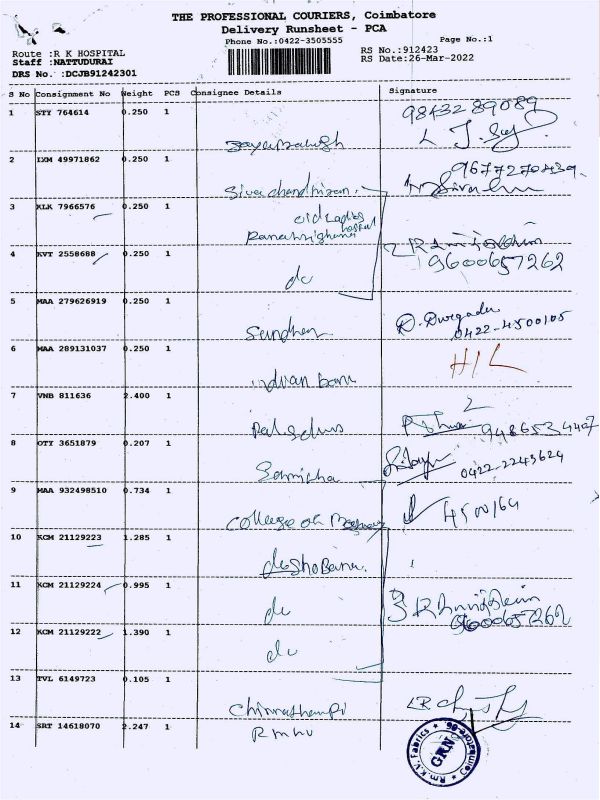 THE PROFESSIONAL COURIERS, Coimbatore
Delivery Runsheet - PCA
Phone No.:0422-3505555
Page No.:1
Route :R K HOSPITAL
Staff :NATTUDURAI
DRS No. :DCJB91242301
RS No.:912423
RS Date:26-Mar-2022
S No Consignment No Weight PCS Consignee Details Signature
1 STY 764614 0.250 1
9843289089
2 LXM 49971862 0.250 1
9677270439
Sivachandhiran
3 KLK 7966576 0.250 1
old Ladies
4 KVT 2558688 0.250 1
9600657262
do
5 MAA 279626919 0.250 1
0422-4500105
6 MAA 289131037 0.250 1
H/L
indian bank
7 VNB 811636 2.400 1
2
9486534407
8 OTY 3651879 0.207 1
0422-2243624
9 MAA 932498510 0.734 1
4500164
College of
10 KCM 21129223 1.285 1
do Shobana
11 KCM 21129224 0.995 1
9600657262
do
12 KCM 21129222 1.390 1
do
13 TVL 6149723 0.105 1
Chinnathambi
14 SRT 14618070 2.247 1
RMKV
Rm.K.V. Fabrics
GRN
Coimbatore-